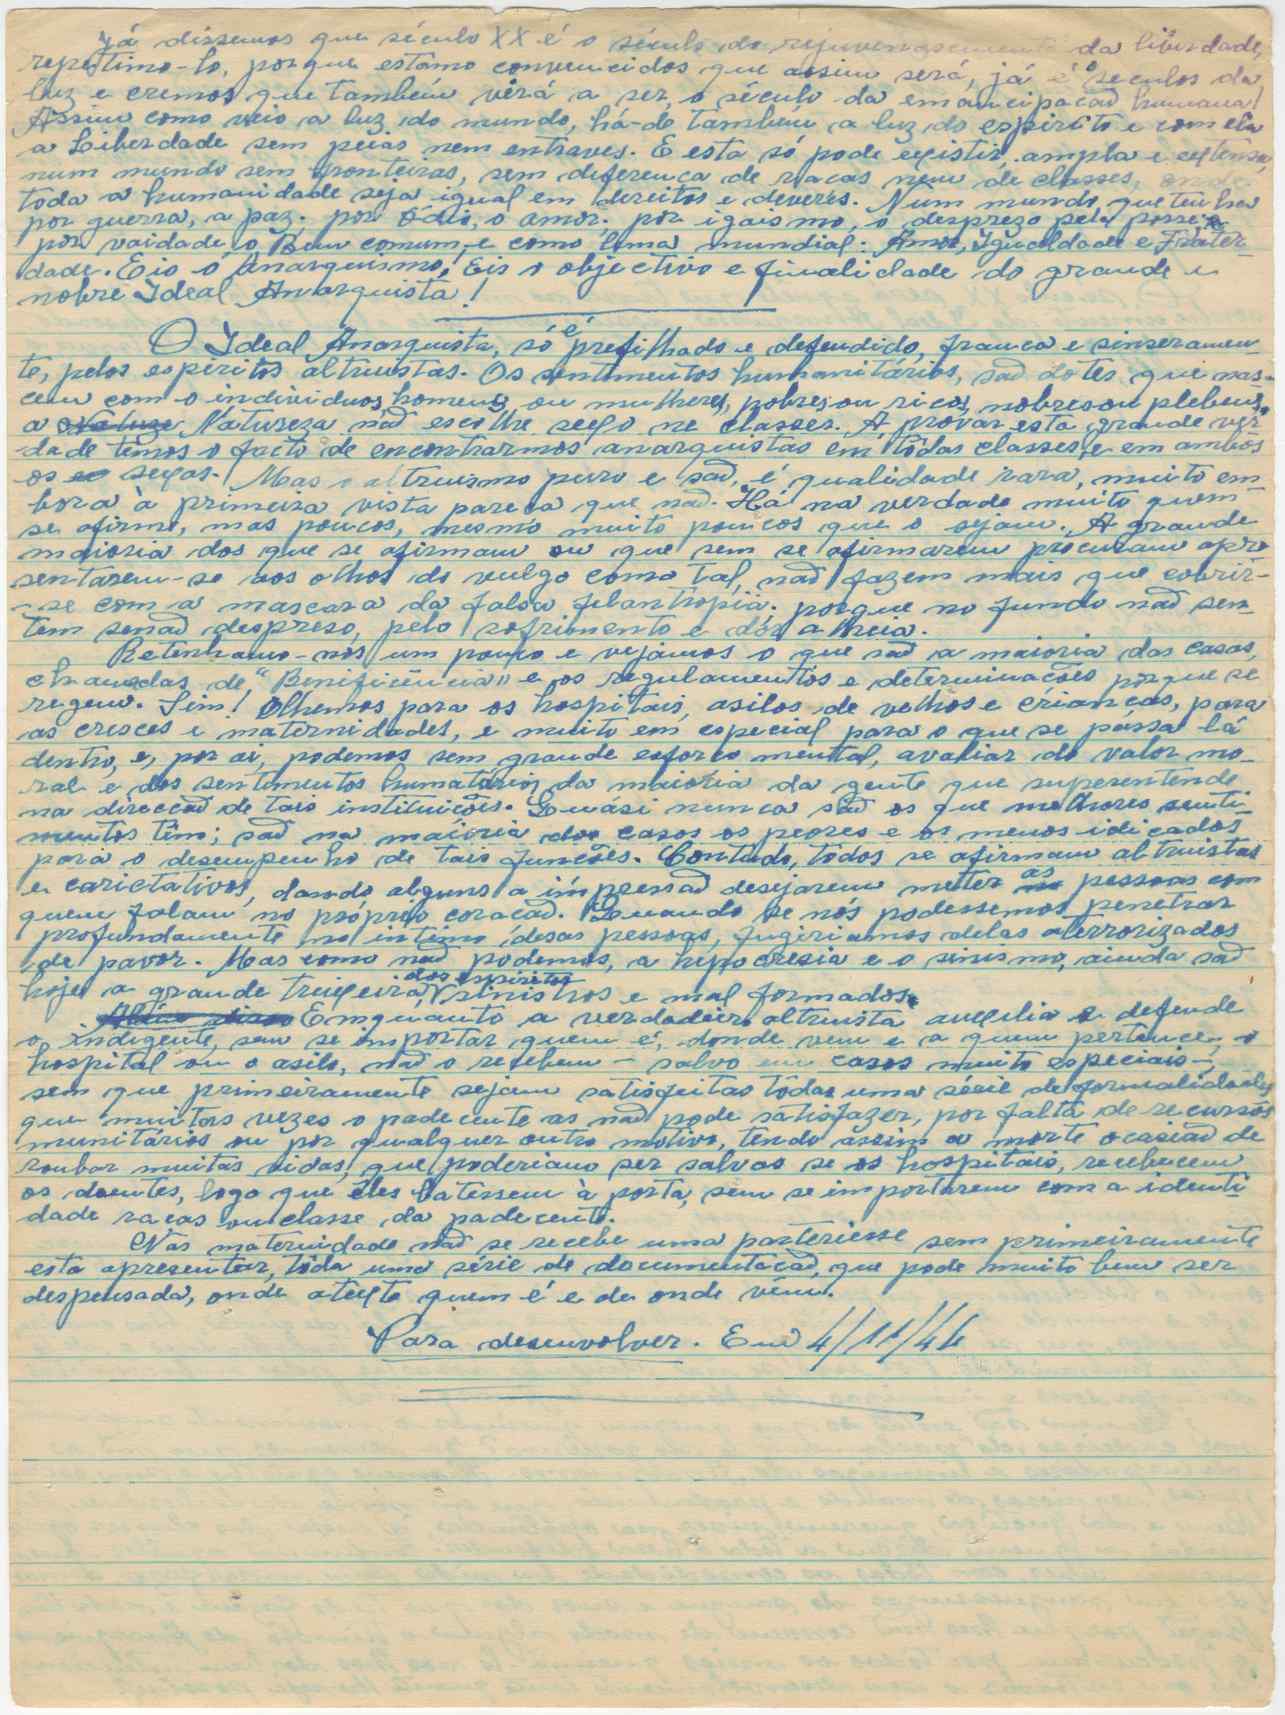 Já dissemos que século XX é o século do rejuvenescimento da liberdade,
repetimo-lo, porque estamo convencidos que assim será, já é o seculos da
luz e cremos que também virá a ser, o século da emancipacaõ humana!
Assim como veio a luz do mundo, há-de tambem a luz do espirito e com ela
a Liberdade sem peias nem entraves. E esta só pode existir, ampla e extensa,
num mundo sem fronteiras, sem diferenca de racas nem de classes, onde
toda a humanidade seja igual em dereitos e deveres. Num mundo, que tenha
por guerra, a paz. por ódio, o amor. por igaismo, o desprezo pela posse, e
por vaidade, o Bem comum, e como lema mundial: Amor, Igualdade e Frater-
dade. Eis o Anarquismo! Eis o objectivo e finalidade do grande e
nobre Ideal Anarquista!
O Ideal Anarquista, só é prefilhado e defendido, franca e sinseramen-
te, pelos espiritos altruistas. Os sentimentos humanitários, saõ dotes que nas-
cem com o individuos, homens ou mulheres, pobres ou ricos, nobres ou plebeus,
a Natureza naõ escolhe sexo ne classes. A provar esta grande ver-
dade temos o facto de encontrarmos anarquistas em todas classes, e em ambos
os sexos. Mas o altruismo puro e saõ, é qualidade rara, muito em
bora à primeira vista pareca que naõ. Há na verdade muito quem
se afirme, mas poucos, mesmo muito poucos que o sejam. A grande
maioria dos que se afirmam ou que sem se afirmarem procuram apre
sentarem-se aos olhos do vulgo como tal, naõ fazem mais que cobrir-
-se com a mascara da falsa filantropia. porque no fundo naõ sen-
tem senaõ despreso, pelo sofrimento e dôr alheia.
Retenhamo-nos um pouco e vejamos o que saõ a maioria das casas,
chamadas de "Beneficiencia" e os regulamentos e determinações porque se
regem. Sim! Olhemos para os hospitais, asilos de velhos e crianças, para
as creces e maternidades, e muito em especial para o que se passa lá
dentro, e, por ai, podemos sem grande esforco mental, avaliar do valôr mo-
ral e dos sentimentos humatários da maioria da gente que superentende
na direccaõ de tais instituições. Quasi nunca saõ os que melhores senti-
mentos têm; saõ na maioria dos casos os peores e os menos idicados
para o desempenho de tais funcões. Contudo, todos se afirmam altruistas
e carictativos, dando alguns a impressaõ desejarem meter as pessoas com
quem falam no próprio coracaõ. Quando se nós podessemos penetrar
profundamente no intimo desas pessoas, fugiriamos delas aterrorizados
de pavor. Mas como naõ podemos, a hipocresia e o sinismo, ainda saõ
hoje a grande trincheira dos espiritos sinistros e mal formados.
Emquanto a verdadeiro altruista auxilia e defende
o indigente, sem se importar quem é, donde vem e a quem pertence, o
hospital ou o asilo, naõ o recebem – salvo em casos muito especiais –,
sem que primeiramente sejam satisfeitas tôdas uma série de formalidades,
que muitas vezes o padecente as naõ pode satisfazer, por falta de recursos
munitários ou por qualquer outro motivo, tendo assim a morte ocasiaõ de
roubar muitas vidas, que poderiam ser salvas se os hospitais, recebecem
os doentes, logo que êles batessem à porta, sem se importarem com a identi
dade racas ou classe da padecente.
Nas maternidade naõ se recebe uma parteriesse sem primeiramente
esta apresentar, toda uma série de documentacaõ, que pode muito bem ser
despensada, onde ateste quem é e de onde vem.
Para desenvolver. Em 4/11/44